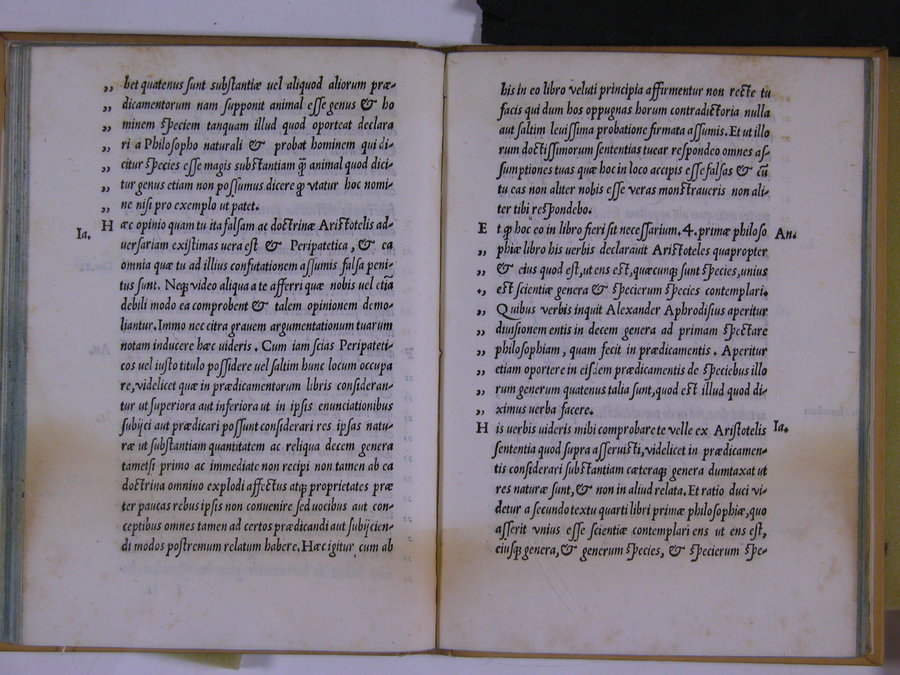 ,, bet quatenus sunt substantiæ uel aliquod aliorum præ-
,, dicamentorum nam supponit animal esse genus & ho
,, minem speciem tanquam illud quod oporteat declara
,, ri a Philosopho naturali & probat hominem qui di-
,, citur species esse magis substantiam q̃ animal quod dici-
,, tur genus etiam non possumus dicere ꝙ vtatur hoc nomi-
,, ne nisi pro exemplo ut patet.
Ia. Hæc opinio quam tu ita falsam ac doctrinæ Aristotelis ad-
uersariam existimas uera est & Peripatetica, & ea
omnia quæ tu ad illius confutationem assumis falsa peni-
tus sunt. Neq; video aliqua a te afferri quæ nobis uel etiã
debili modo ea comprobent & talem opinionem demo-
liantur. Immo nec citra grauem argumentationum tuarum
notam inducere hæc uideris. Cum iam scias Peripateti-
cos uel iusto titulo possidere uel saltim hunc locum occupa
re, videlicet quæ in prædicamentorum libris consideran-
tur ut superiora aut inferiora ut in ipsis enunciationibus
subijci aut prædicari possunt considerari res ipsas natu-
ræ ut substantiam quantitatem ac reliqua decem genera
tametsi primo ac immediate non recipi non tamen ab ea
doctrina omnino explodi affectus atq; proprietates præ
ter paucas rebus ipsis non conuenire sed uocibus aut con-
ceptibus omnes tamen ad certos prædicandi aut subijcien-
di modos postremum relatum habere. Hæc igitur cum ab
his in eo libro veluti principia affirmentur non recte tu
facis qui dum hos oppugnas horum contradictoria nulla
aut saltim leuissima probatione firmata assumis. Et ut illo
rum doctissimorum sententias tuear respondeo omnes as-
sumptiones tuas quæ hoc in loco accipis esse falsas & cũ
tu eas non aliter nobis esse veras monstraueris non ali-
ter tibi respondebo.
Et ꝙ hoc eo in libro fieri sit necessarium. 4. primæ philoso An.
,, phiæ libro his uerbis declarauit Aristoteles quapropter
,, & eius quod est, ut ens est, quæcunq; sunt species, unius
,, est scientiæ genera & specierum species contemplari.
,, Quibus verbis inquit Alexander Aphrodisius aperitur
,, diuisionem entis in decem genera ad primam spectare
,, philosophiam, quam fecit in prædicamentis. Aperitur
,, etiam oportere in eisdem prædicamentis de speciebus illo
,, rum generum quatenus talia sunt, quod est illud quod di-
,, ximus uerba facere.
His uerbis uideris mihi comprobare te velle ex Aristotelis Ia.
sententia quod supra asseruisti, videlicet in prædicamen-
tis considerari substantiam cæteraq; genera dumtaxat ut
res naturæ sunt, & non in aliud relata. Et ratio duci vi-
detur a secundo textu quarti libri primæ philosophiæ, quo
asserit vnius esse scientiæ contemplari ens ut ens est,
eiusq; genera, & generum species, & specierum spe-